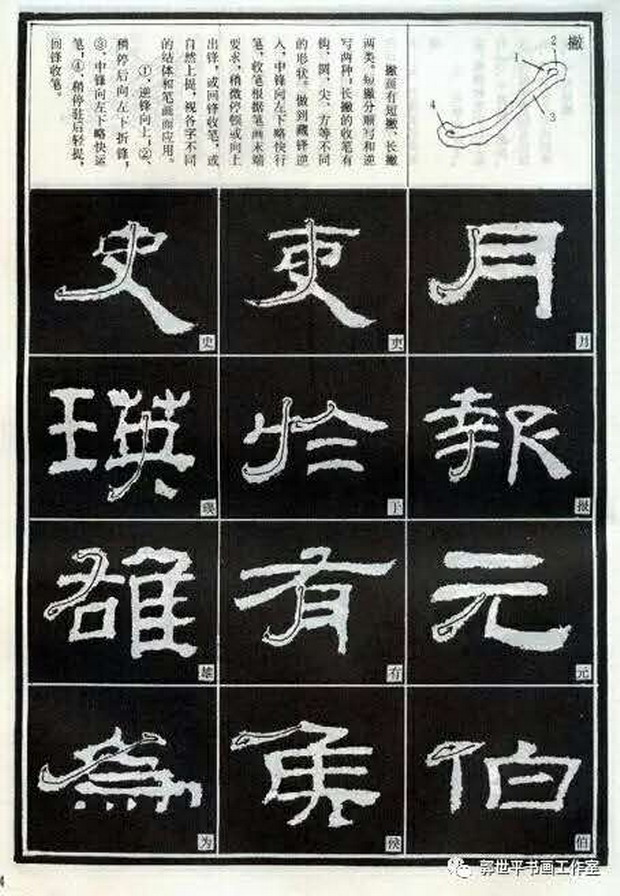 撇
1
2
3
4
撇画有短撇、长撇
两类。短撇分顺写和逆
写两种，长撇的收笔有
钩、圆、尖、方等不同
的形状。做到藏锋逆
入，中锋向左下略快行
笔，收笔根据笔画末端
要求，稍微停顿或向上
出锋，或回锋收笔，或
自然上提，视各字不同
的结体和笔画而应用。
①、逆锋向上，②、
稍停后向左下折锋，
③、中锋向左下略快运
笔，④、稍停驻后轻提，
回锋收笔。
月
吏
史
報
於
瑛
元
有
雄
伯
侯
為
月
吏
史
报
于
瑛
元
有
雄
伯
侯
为
郭世平书画工作室